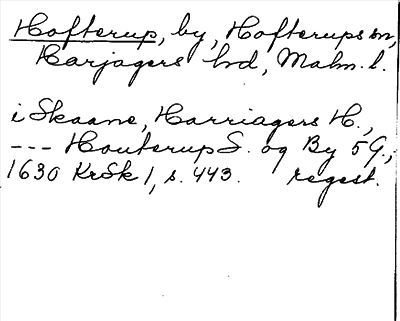 Hofterup, by, Hofterups sn,
Harjagers hd, Malm. l.
i Skaane, Harriagers H.,
--- Houterup S. og By 5 G.;
1630 KrSk 1, s. 443. regest.